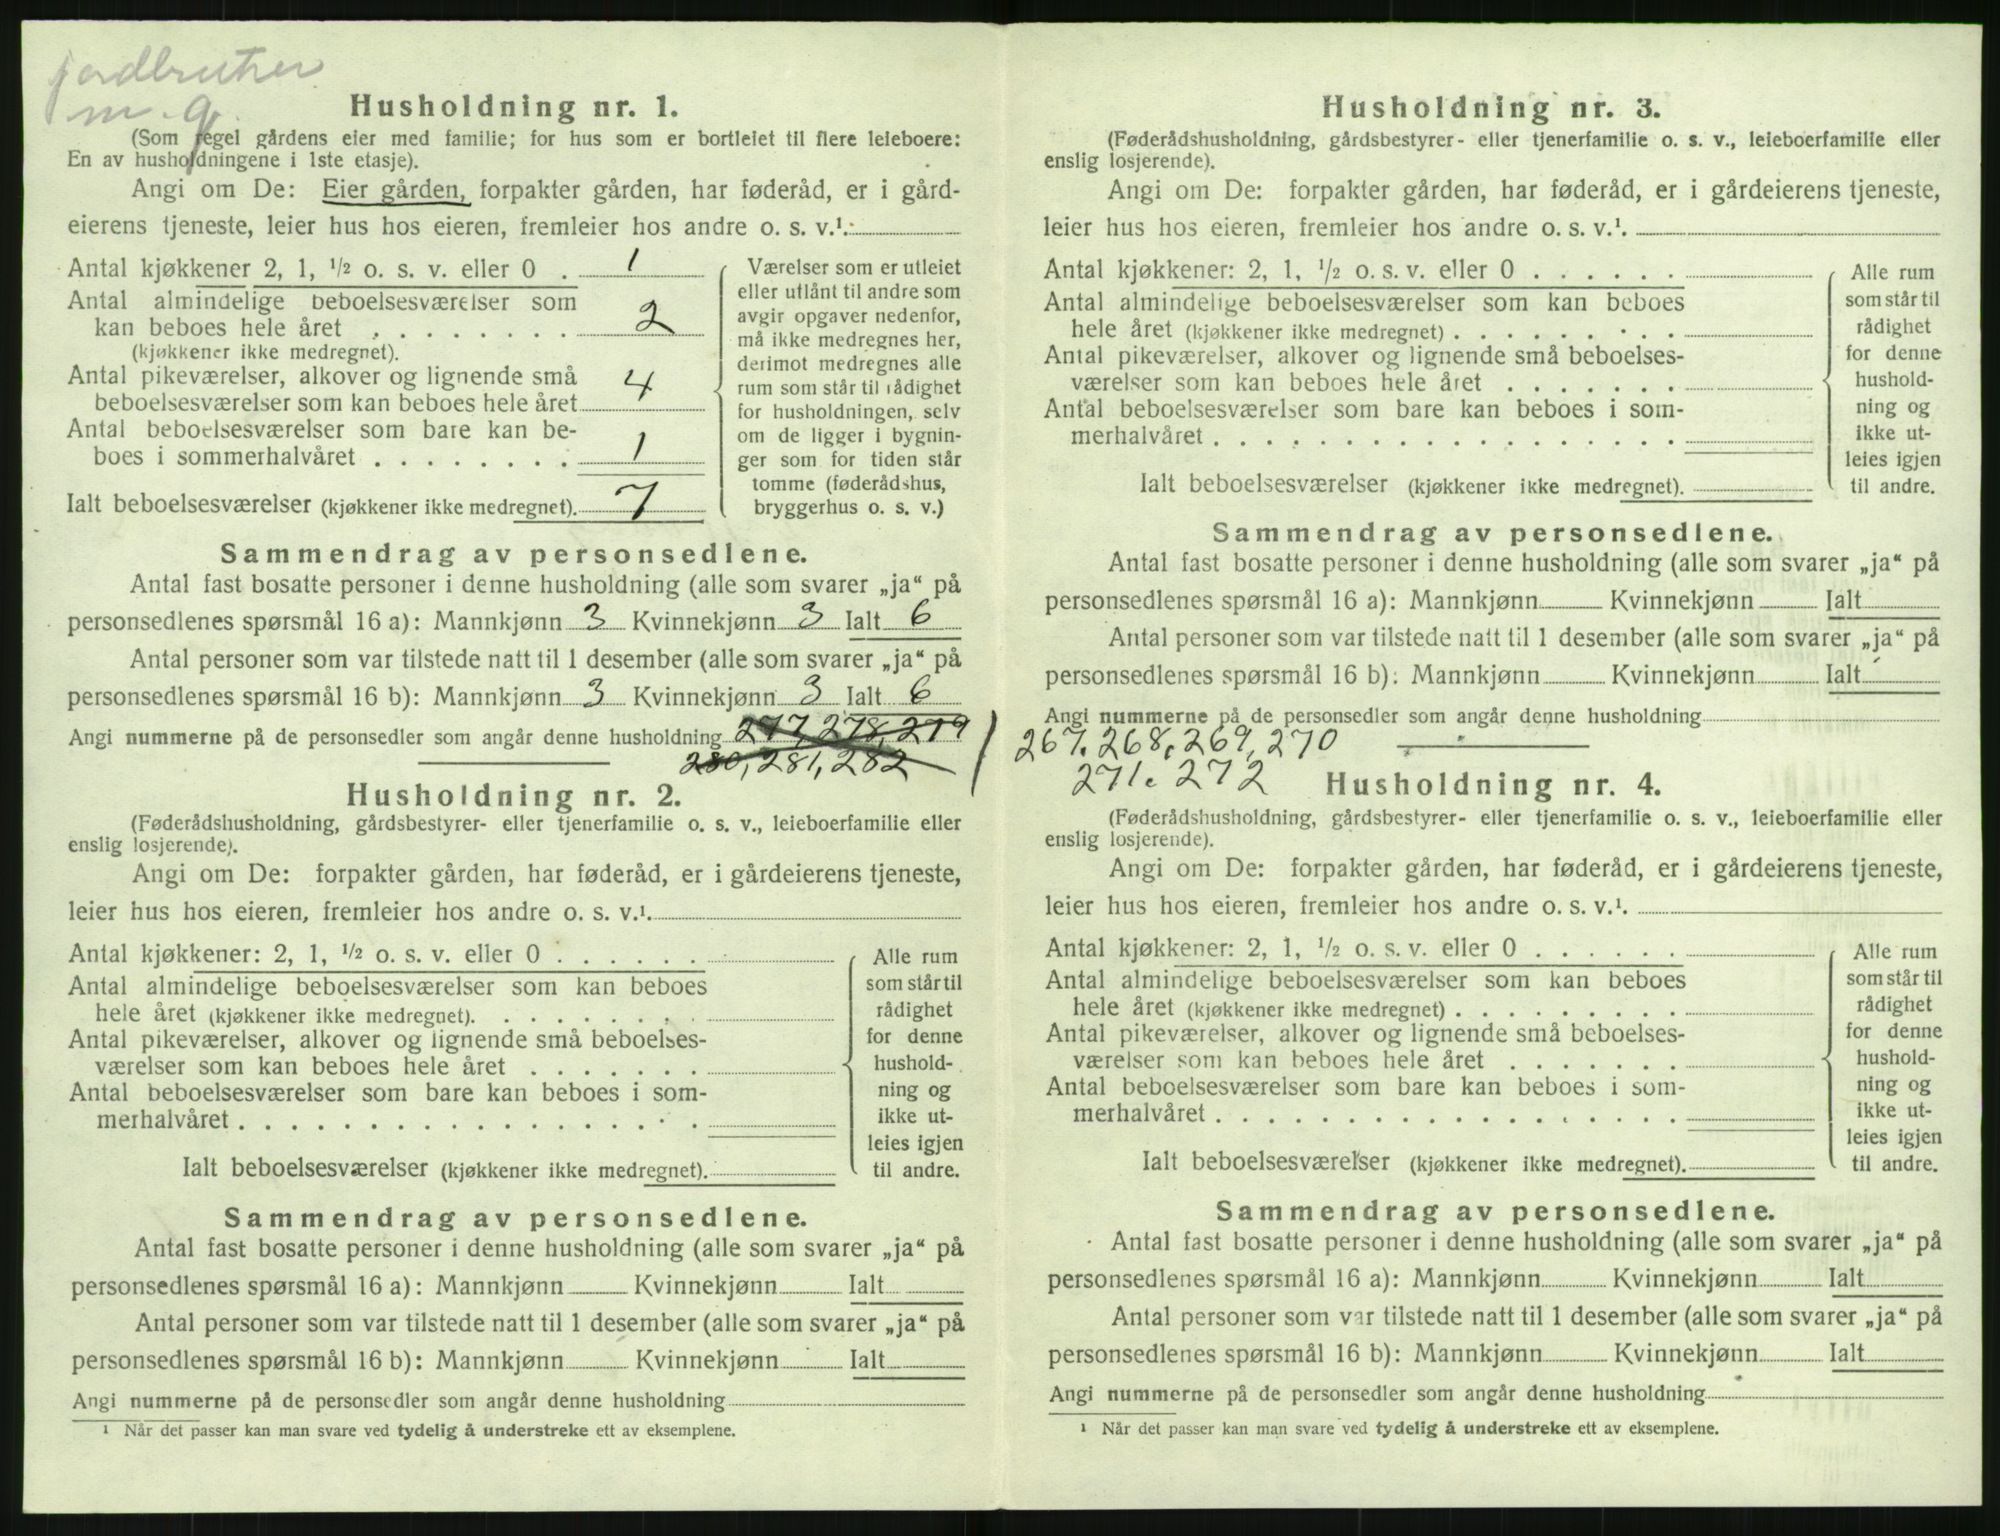 jordbruker
m. g.
Husholdning nr. 1.
(Som regel gårdens eier med familie; for hus som er bortleiet til flere leieboere:
En av husholdningene i 1ste etasje).
Angi om De: Eier gården, forpakter gården, har føderåd, er i gård-
eierens tjeneste, leier hus hos eieren, fremleier hos andre o. s. v.¹.
Antal kjøkkener 2, 1, ½ o. s. v. eller 0 . 1
Antal almindelige beboelsesværelser som
kan beboes hele året . . . . . . . . 2
(kjøkkener ikke medregnet).
Antal pikeværelser, alkover og lignende små
beboelsesværelser som kan beboes hele året 4
Antal beboelsesværelser som bare kan be-
boes i sommerhalvåret . . . . . . . . 1
Ialt beboelsesværelser (kjøkkener ikke medregnet). 7
Værelser som er utleiet
eller utlånt til andre som
avgir opgaver nedenfor,
må ikke medregnes her,
derimot medregnes alle
rum som står til rådighet
for husholdningen, selv
om de ligger i bygnin-
ger som for tiden står
tomme (føderådshus,
bryggerhus o. s. v.)
Sammendrag av personsedlene.
Antal fast bosatte personer i denne husholdning (alle som svarer „ja“ på
personsedlenes spørsmål 16 a): Mannkjønn 3 Kvinnekjønn 3 Ialt 6
Antal personer som var tilstede natt til 1 desember (alle som svarer „ja“ på
personsedlenes spørsmål 16 b): Mannkjønn 3 Kvinnekjønn 3 Ialt 6
Angi nummerne på de personsedler som angår denne husholdning 277, 278, 279
280, 281, 282
267. 268, 269, 270
271. 272
Husholdning nr. 2.
(Føderådshusholdning, gårdsbestyrer- eller tjenerfamilie o. s. v., leieboerfamilie eller
enslig losjerende).
Angi om De: forpakter gården, har føderåd, er i gårdeierens tjeneste,
leier hus hos eieren, fremleier hos andre o. s. v.¹.
Antal kjøkkener: 2, 1, ½ o. s. v. eller 0 . . . . . .
Antal almindelige beboelsesværelser som kan beboes
hele året (kjøkkener ikke medregnet). . . . . . . . .
Antal pikeværelser, alkover og lignende små beboelses-
værelser som kan beboes hele året . . . . . . .
Antal beboelsesværelser som bare kan beboes i som-
merhalvåret . . . . . . . . . . . . . . . . . .
Ialt beboelsesværelser (kjøkkener ikke medregnet).
Alle rum
som står til
rådighet
for denne
hushold-
ning og
ikke ut-
leies igjen
til andre.
Sammendrag av personsedlene.
Antal fast bosatte personer i denne husholdning (alle som svarer „ja“ på
personsedlenes spørsmål 16 a): Mannkjønn Kvinnekjønn Ialt
Antal personer som var tilstede natt til 1 desember (alle som svarer „ja“ på
personsedlenes spørsmål 16 b): Mannkjønn Kvinnekjønn Ialt
Angi nummerne på de personsedler som angår denne husholdning
¹ Når det passer kan man svare ved tydelig å understreke ett av eksemplene.
Husholdning nr. 3.
(Føderådshusholdning, gårdsbestyrer- eller tjenerfamilie o. s. v., leieboerfamilie eller
enslig losjerende).
Angi om De: forpakter gården, har føderåd, er i gårdeierens tjeneste,
leier hus hos eieren, fremleier hos andre o. s. v.¹.
Antal kjøkkener: 2, 1, ½ o. s. v. eller 0 . . . . . .
Antal almindelige beboelsesværelser som kan beboes
hele året (kjøkkener ikke medregnet) . . . . . . . . .
Antal pikeværelser, alkover og lignende små beboelses-
værelser som kan beboes hele året . . . . . . .
Antal beboelsesværelser som bare kan beboes i som-
merhalvåret . . . . . . . . . . . . . . . . . .
Ialt beboelsesværelser (kjøkkener ikke medregnet).
Alle rum
som står til
rådighet
for denne
hushold-
ning og
ikke ut-
leies igjen
til andre.
Sammendrag av personsedlene.
Antal fast bosatte personer i denne husholdning (alle som svarer „ja“ på
personsedlenes spørsmål 16 a): Mannkjønn Kvinnekjønn Ialt
Antal personer som var tilstede natt til 1 desember (alle som svarer „ja“ på
personsedlenes spørsmål 16 b): Mannkjønn Kvinnekjønn Ialt
Angi nummerne på de personsedler som angår denne husholdning
Husholdning nr. 4.
(Føderådshusholdning, gårdsbestyrer- eller tjenerfamilie o. s. v., leieboerfamilie eller
enslig losjerende).
Angi om De: forpakter gården, har føderåd, er i gårdeierens tjeneste,
leier hus hos eieren, fremleier hos andre o. s. v.¹.
Antal kjøkkener: 2, 1, ½ o. s. v. eller 0 . . . . . .
Antal almindelige beboelsesværelser som kan beboes
hele året (kjøkkener ikke medregnet) . . . . . . . . .
Antal pikeværelser, alkover og lignende små beboelses-
værelser som kan beboes hele året . . . . . . .
Antal beboelsesværelser som bare kan beboes i som-
merhalvåret . . . . . . . . . . . . . . . . . .
Ialt beboelsesværelser (kjøkkener ikke medregnet).
Alle rum
som står til
rådighet
for denne
hushold-
ning og
ikke ut-
leies igjen
til andre.
Sammendrag av personsedlene.
Antal fast bosatte personer i denne husholdning (alle som svarer „ja“ på
personsedlenes spørsmål 16 a): Mannkjønn Kvinnekjønn Ialt
Antal personer som var tilstede natt til 1 desember (alle som svarer „ja“ på
personsedlenes spørsmål 16 b): Mannkjønn Kvinnekjønn Ialt
Angi nummerne på de personsedler som angår denne husholdning
¹ Når det passer kan man svare ved tydelig å understreke ett av eksemplene.